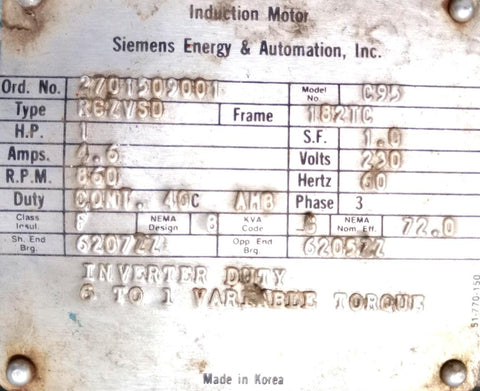 Induction Motor
Siemens Energy & Automation, Inc.
Ord. No. 2701509001 Model No. C95
Type RGZVSD Frame 182TC
H.P. 1 S.F. 1.0
Amps. 4.6 Volts 230
R.P.M. 860 Hertz 60
Duty CONT. 40C AMB Phase 3
Class Insul. F NEMA Design B KVA Code NEMA Nom. Eff. 72.0
Sh. End Brg. 6207ZZ Opp End Brg. 6205ZZ
INVERTER DUTY
6 TO 1 VARIABLE TORQUE
Made in Korea
51-770-150